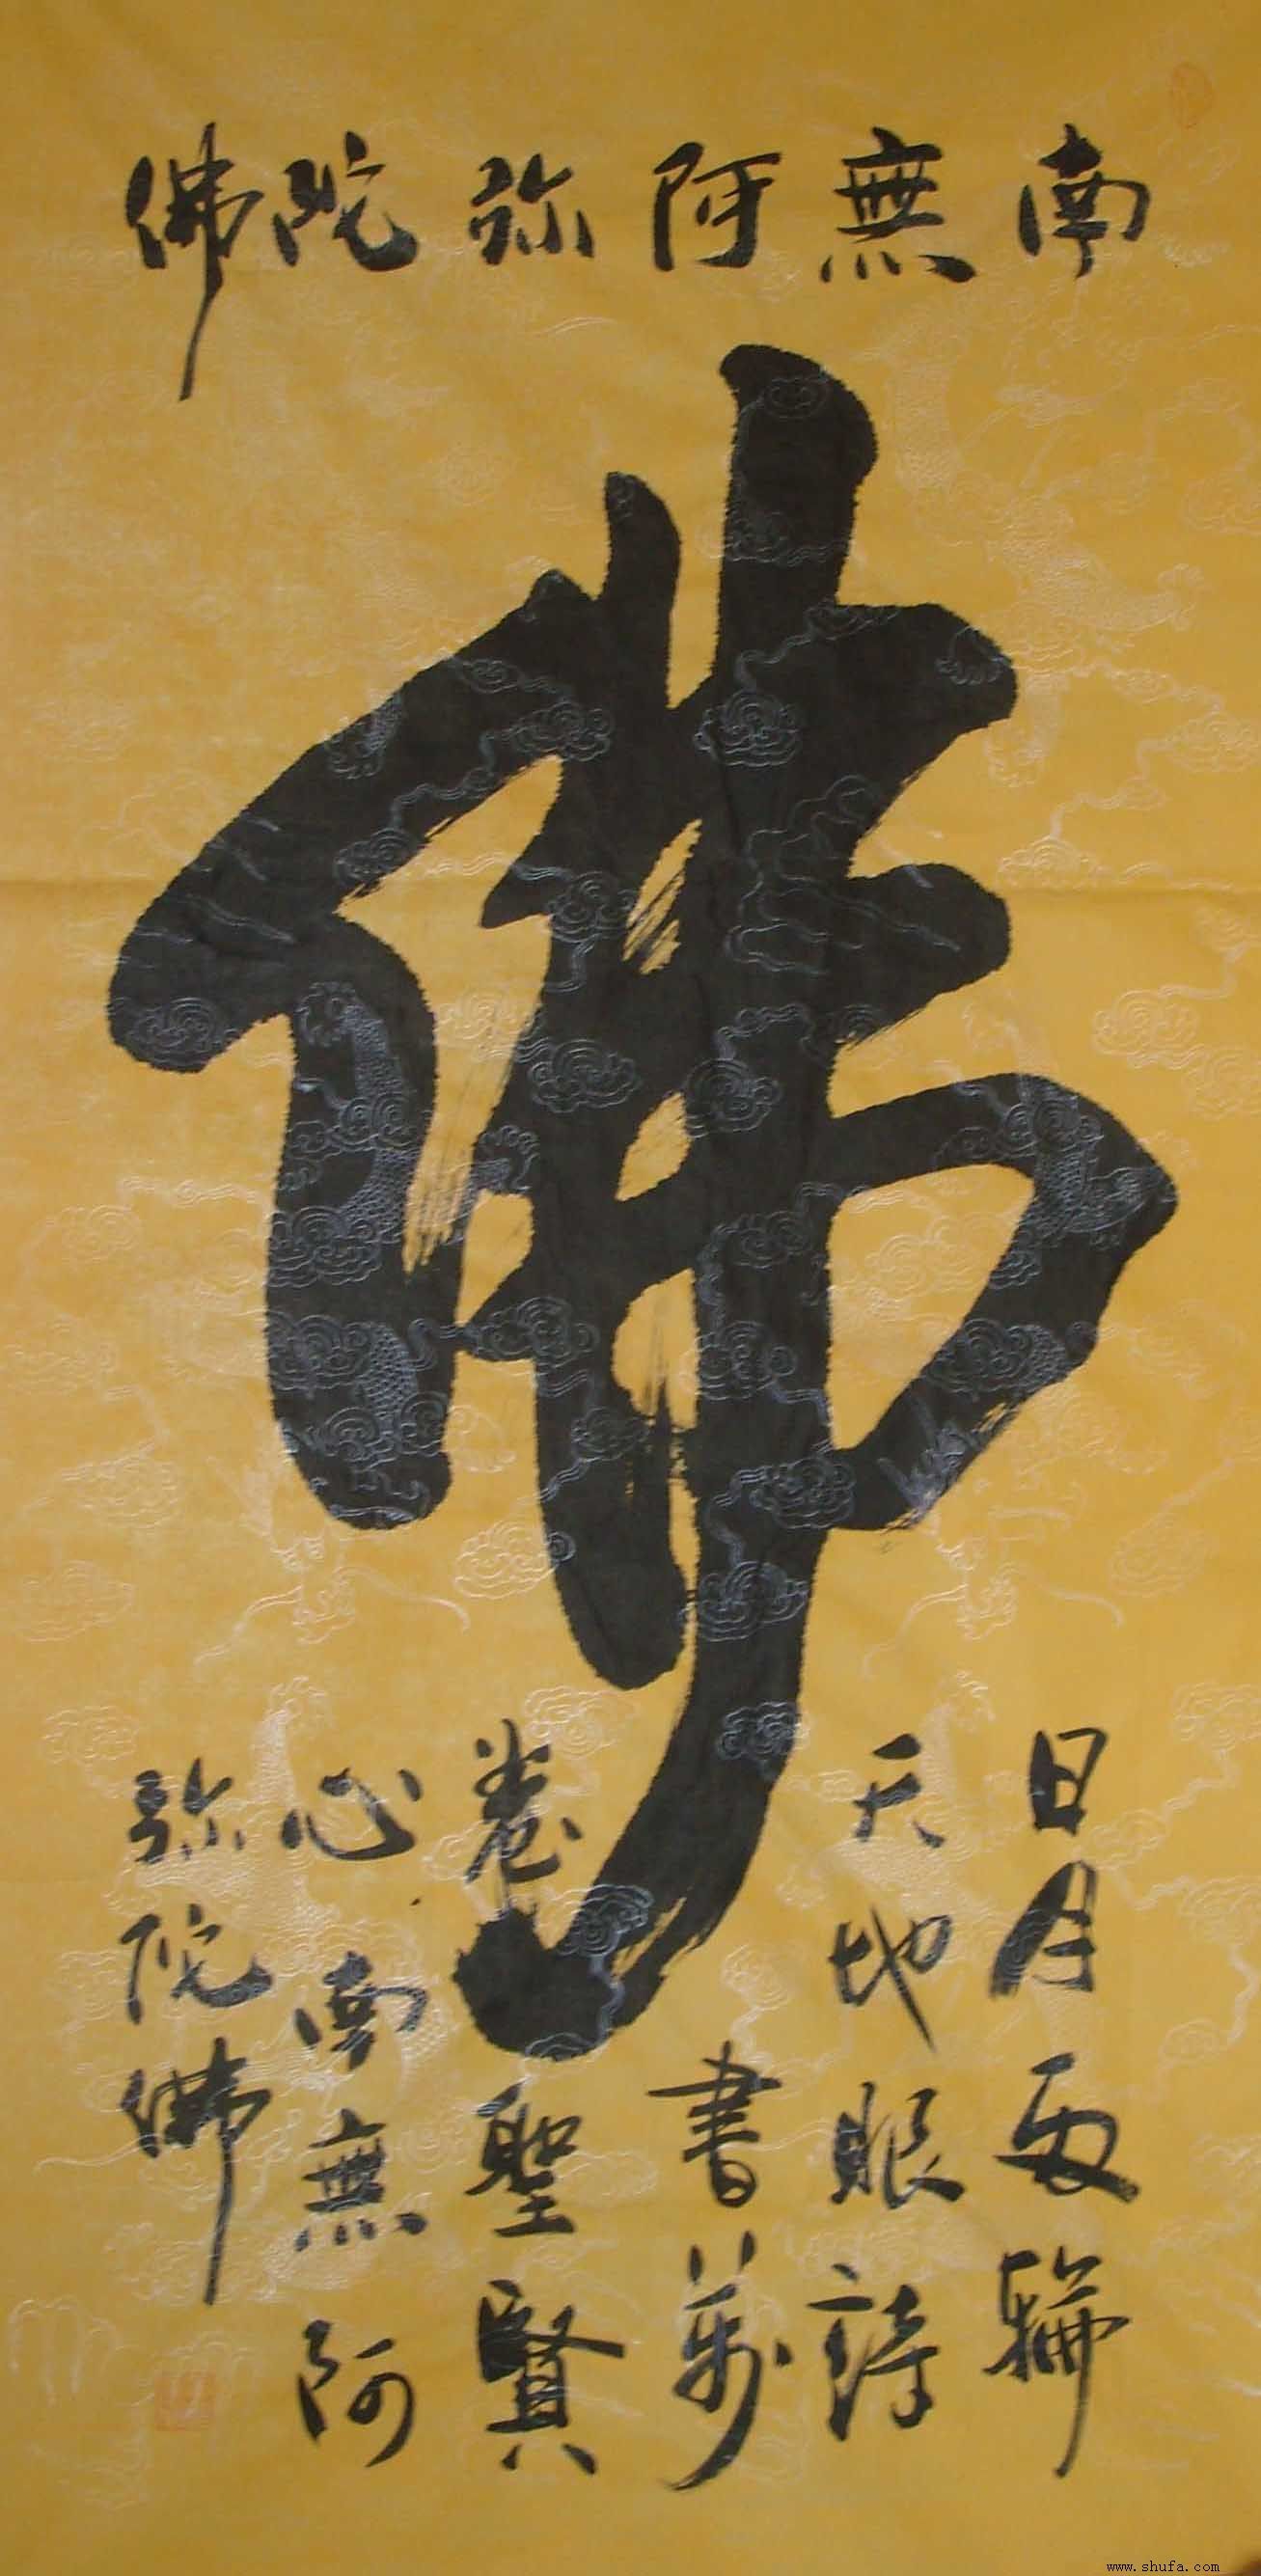 南無阿弥陀佛
佛
日月兩輪
天地眼詩
書萬
卷聖賢
心南無阿
弥陀佛
www.shufa.com